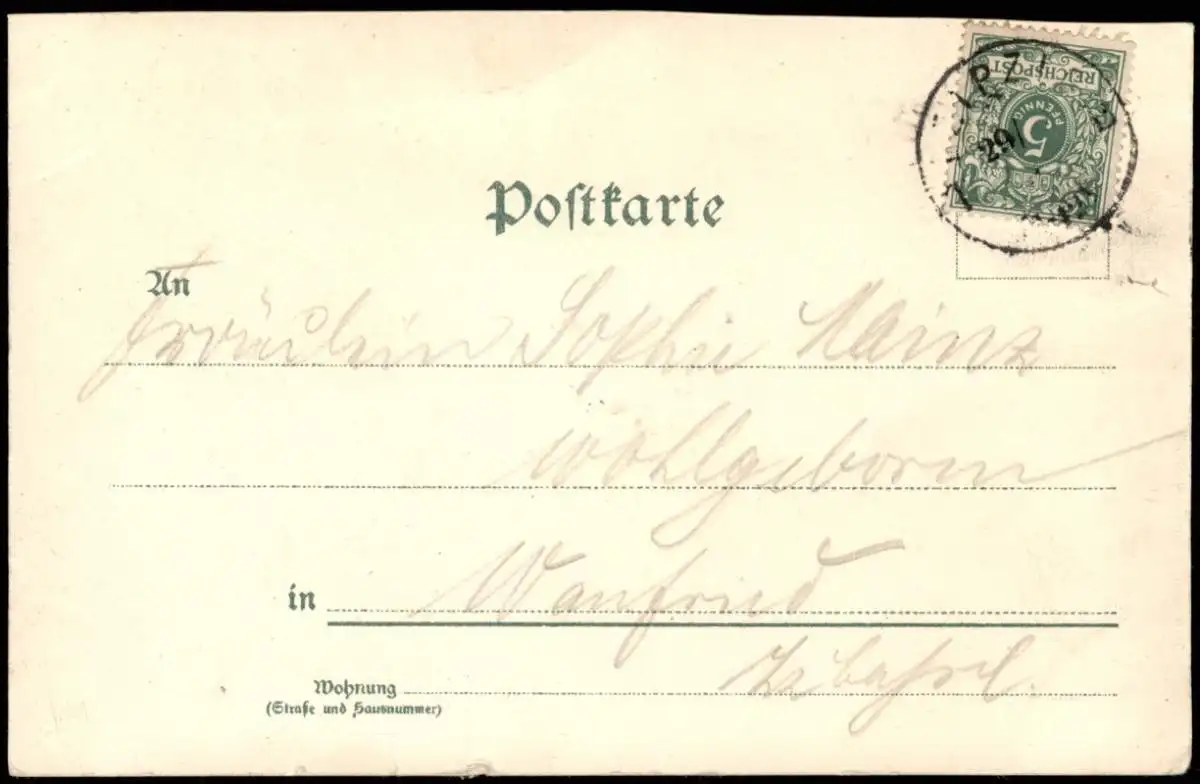 REICHSPOST
5
PFENNIG
29/
Postkarte
An
Fräulein Sophie Mainz
Wohlgeboren
in Wanfried
Wohnung
(Straße und Hausnummer)